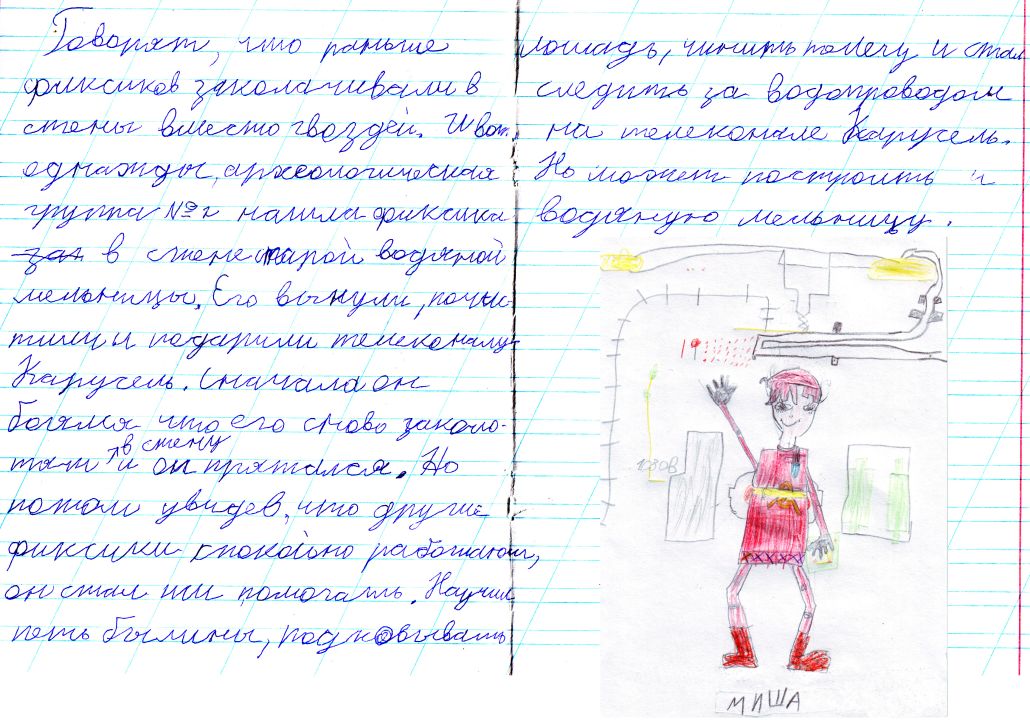 Говорят, что раньше
фиксиков заколачивали в
стены вместо гвоздей. И вот
однажды, археологическая
группа №2 нашла фиксика
зат в стене старой водяной
мельницы. Его вынули, почис-
тили и подарили телеканалу
Карусель. Сначала он
боялся что его снова заколо-
тят в стену и он прятался. Но
потом увидев, что другие
фиксики спокойно работают,
он стал им помогать. Научил
петь былины, подковывать
лошадь, чинить телегу и стал
следить за водопроводом
на телеканале Карусель.
Но может построить и
водяную мельницу.
1080В
МИША